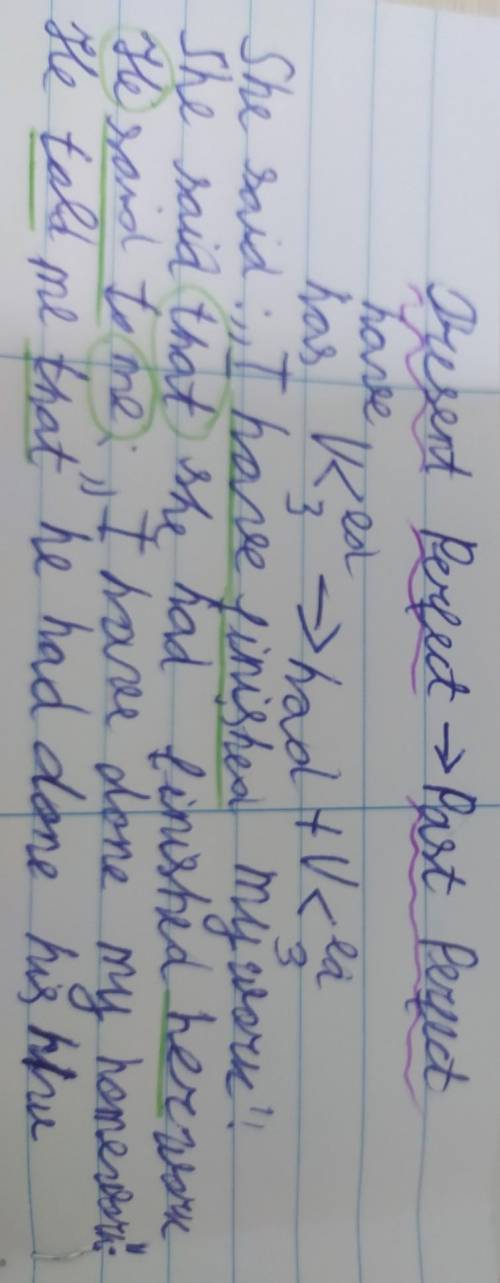 Present Perfect → Past Perfect
have
has V< ed 3 → had + V< ed 3
She said: „I have finished my work".
She said that she had finished her work
He said to me: „I have done my homework".
He told me that he had done his h/w